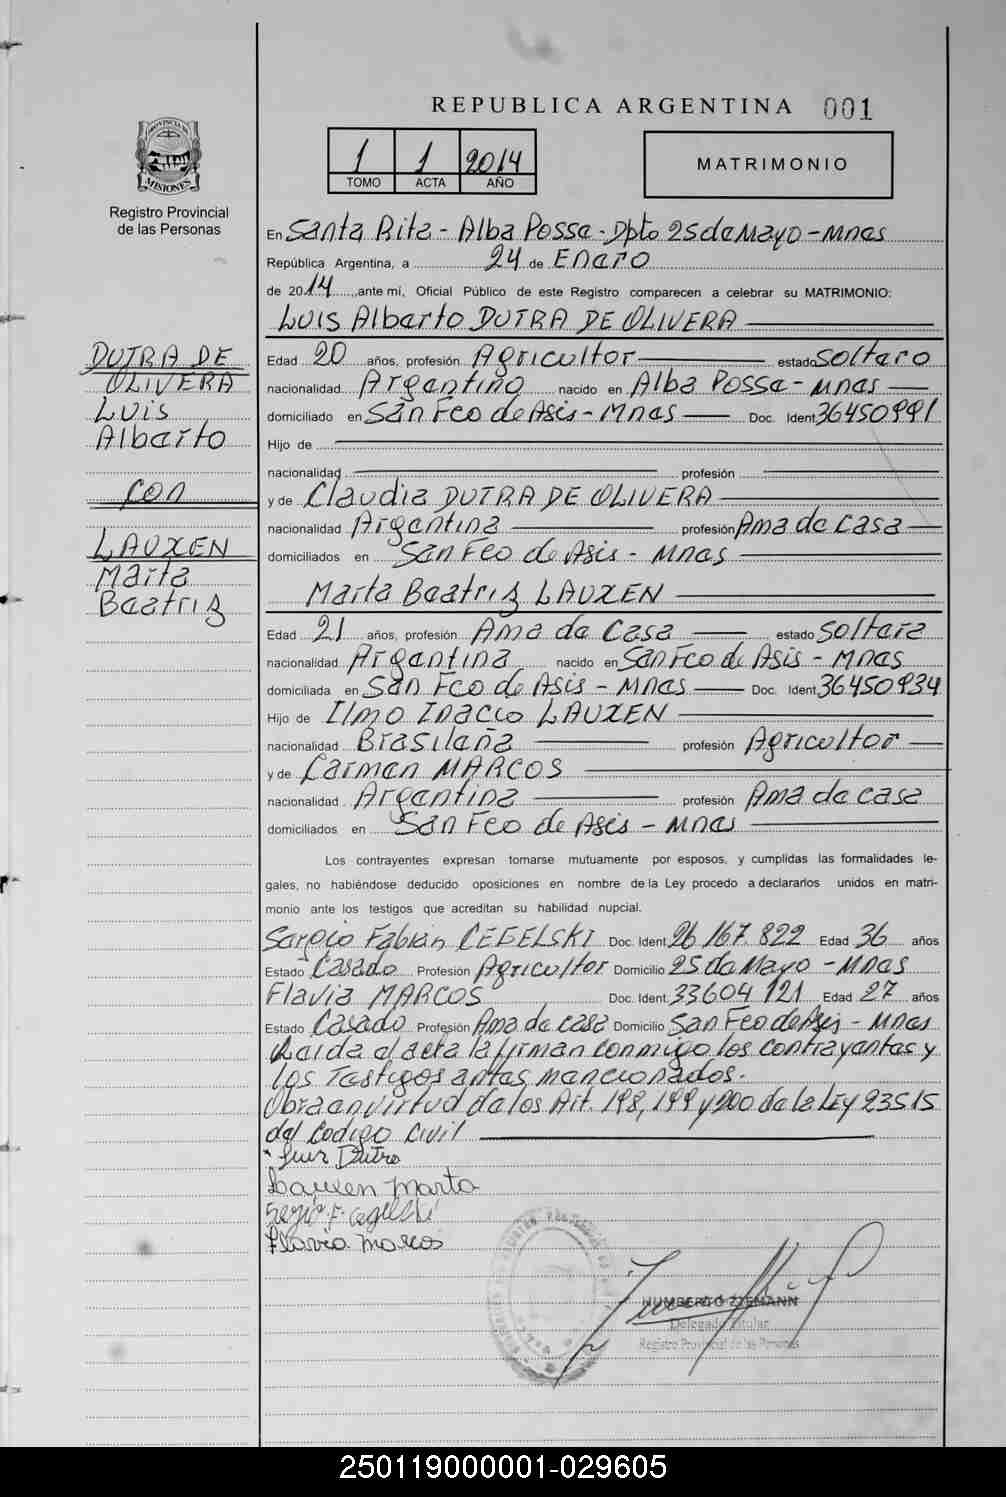 REPUBLICA ARGENTINA 001
PROVINCIA DE
MISIONES
Registro Provincial
de las Personas
1 1 2014
TOMO ACTA AÑO
MATRIMONIO
En Santa Rita - Alba Posse - Dpto 25 de Mayo - Mnes
República Argentina, a 24 de Enero
de 2014, ante mí, Oficial Público de este Registro comparecen a celebrar su MATRIMONIO:
Luis Alberto DUTRA DE OLIVERA
Edad 20 años, profesión Agricultor estado soltero
nacionalidad Argentino nacido en Alba Posse - Mnes
domiciliado en San Fco de Asis - Mnes Doc. Ident. 36450991
Hijo de
nacionalidad profesión
y de Claudia DUTRA DE OLIVERA
nacionalidad Argentina profesión Ama de casa
domiciliados en San Fco de Asis - Mnes
Marta Beatriz LAUXEN
Edad 21 años, profesión Ama de Casa estado soltera
nacionalidad Argentina nacido en San Fco de Asis - Mnes
domiciliada en San Fco de Asis - Mnes Doc. Ident. 36450934
Hijo de Ilmo Inacio LAUXEN
nacionalidad Brasileña profesión Agricultor
y de Carmen MARCOS
nacionalidad Argentina profesión Ama de casa
domiciliados en San Fco de Asis - Mnes
Los contrayentes expresan tomarse mutuamente por esposos, y cumplidas las formalidades le-
gales, no habiéndose deducido oposiciones en nombre de la Ley procedo a declararlos unidos en matri-
monio ante los testigos que acreditan su habilidad nupcial.
Sergio Fabián CEGELSKI Doc. Ident. 26.167.822 Edad 36 años
Estado Casado Profesión Agricultor Domicilio 25 de Mayo - Mnes
Flavia MARCOS Doc. Ident. 33604121 Edad 27 años
Estado Casado Profesión Ama de casa Domicilio San Fco de Asis - Mnes
Leida el acta la firman conmigo los contrayentes y
los Testigos antes mencionados.
Obra en virtud de los Art. 198, 199 y 200 de la Ley 23515
del Codigo Civil
Luis Dutra
Lauxen Marta
Sergio F. Cegelski
Flavia Marcos
HUMBERTO ZIEMANN
Delegado Titular
Registro Provincial de las Personas
DUTRA DE
OLIVERA
Luis
Alberto
con
LAUXEN
Marta
Beatriz
250119000001-029605